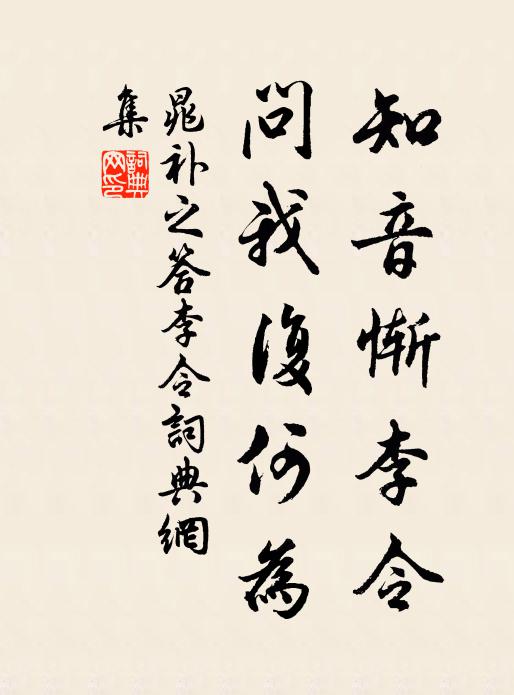 知音慚李令
問我復何為
晁补之答李令詞典網
集
詞典網印